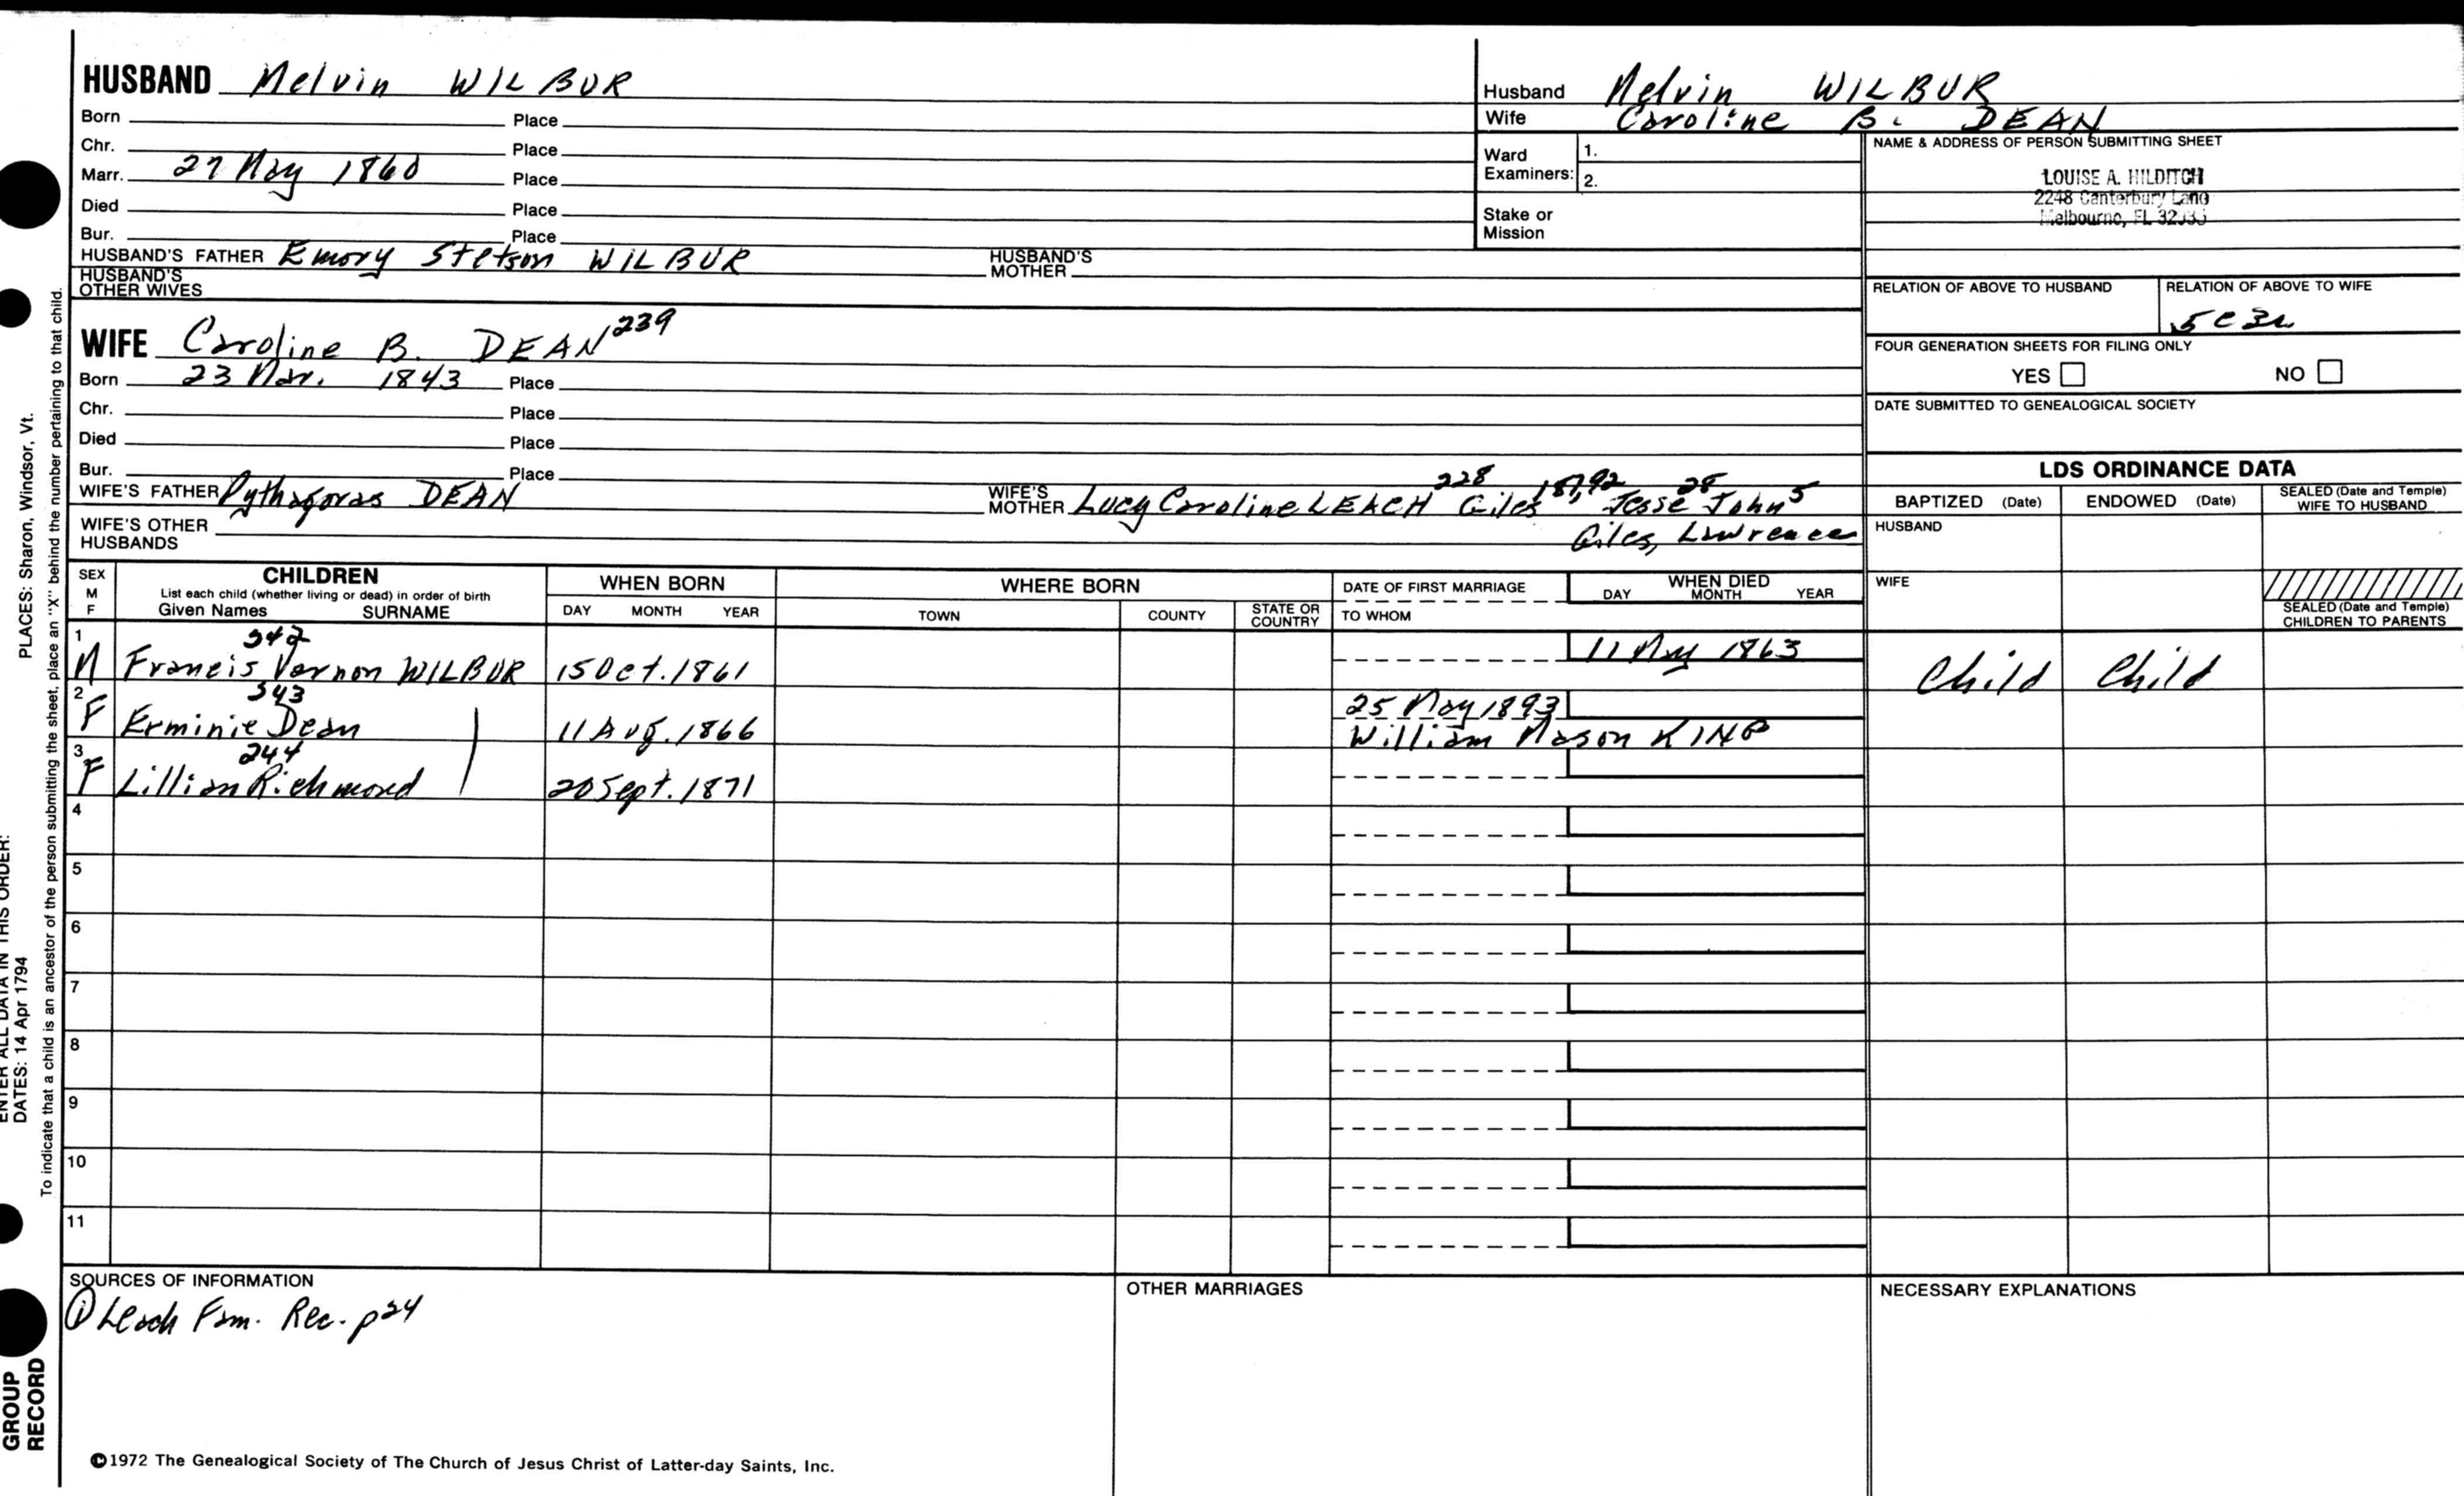 HUSBAND Melvin WILBUR
Born Place
Chr. Place
Marr. 27 May 1860 Place
Died Place
Bur. Place
HUSBAND'S FATHER Emory Stetson WILBUR HUSBAND'S MOTHER
HUSBAND'S OTHER WIVES
WIFE Caroline B. DEAN 239
Born 23 Mar. 1843 Place
Chr. Place
Died Place
Bur. Place
WIFE'S FATHER Pythagoras DEAN WIFE'S MOTHER Lucy Caroline LEACH 228 Giles 187,92 Jesse 28 John 5
Giles, Lawrence
WIFE'S OTHER HUSBANDS
Husband Melvin WILBUR
Wife Caroline B. DEAN
Ward Examiners: 1.
2.
Stake or Mission
NAME & ADDRESS OF PERSON SUBMITTING SHEET
LOUISE A. HILDITCH
2248 Canterbury Lane
Melbourne, FL
RELATION OF ABOVE TO HUSBAND RELATION OF ABOVE TO WIFE
5C3R
FOUR GENERATION SHEETS FOR FILING ONLY
YES NO
DATE SUBMITTED TO GENEALOGICAL SOCIETY
LDS ORDINANCE DATA
BAPTIZED (Date) ENDOWED (Date) SEALED (Date and Temple) WIFE TO HUSBAND
HUSBAND
WIFE
SEALED (Date and Temple) CHILDREN TO PARENTS
SEX M F CHILDREN WHEN BORN WHERE BORN DATE OF FIRST MARRIAGE WHEN DIED
List each child (whether living or dead) in order of birth
Given Names SURNAME DAY MONTH YEAR TOWN COUNTY STATE OR COUNTRY TO WHOM DAY MONTH YEAR
1 M 342 Francis Vernon WILBUR 15 Oct. 1861 11 May 1863 Child Child
2 F 343 Erminie Dean 11 Aug. 1866 25 May 1893
William Mason KING
3 F 344 Lillian Richmond 20 Sept. 1871
4
5
6
7
8
9
10
11
SOURCES OF INFORMATION
① Leach Fam. Rec. p24
OTHER MARRIAGES
NECESSARY EXPLANATIONS
©1972 The Genealogical Society of The Church of Jesus Christ of Latter-day Saints, Inc.
ENTER ALL DATA IN THIS ORDER:
DATES: 14 Apr 1794 PLACES: Sharon, Windsor, Vt.
To indicate that a child is an ancestor of the person submitting the sheet, place an "X" behind the number pertaining to that child.
GROUP
RECORD